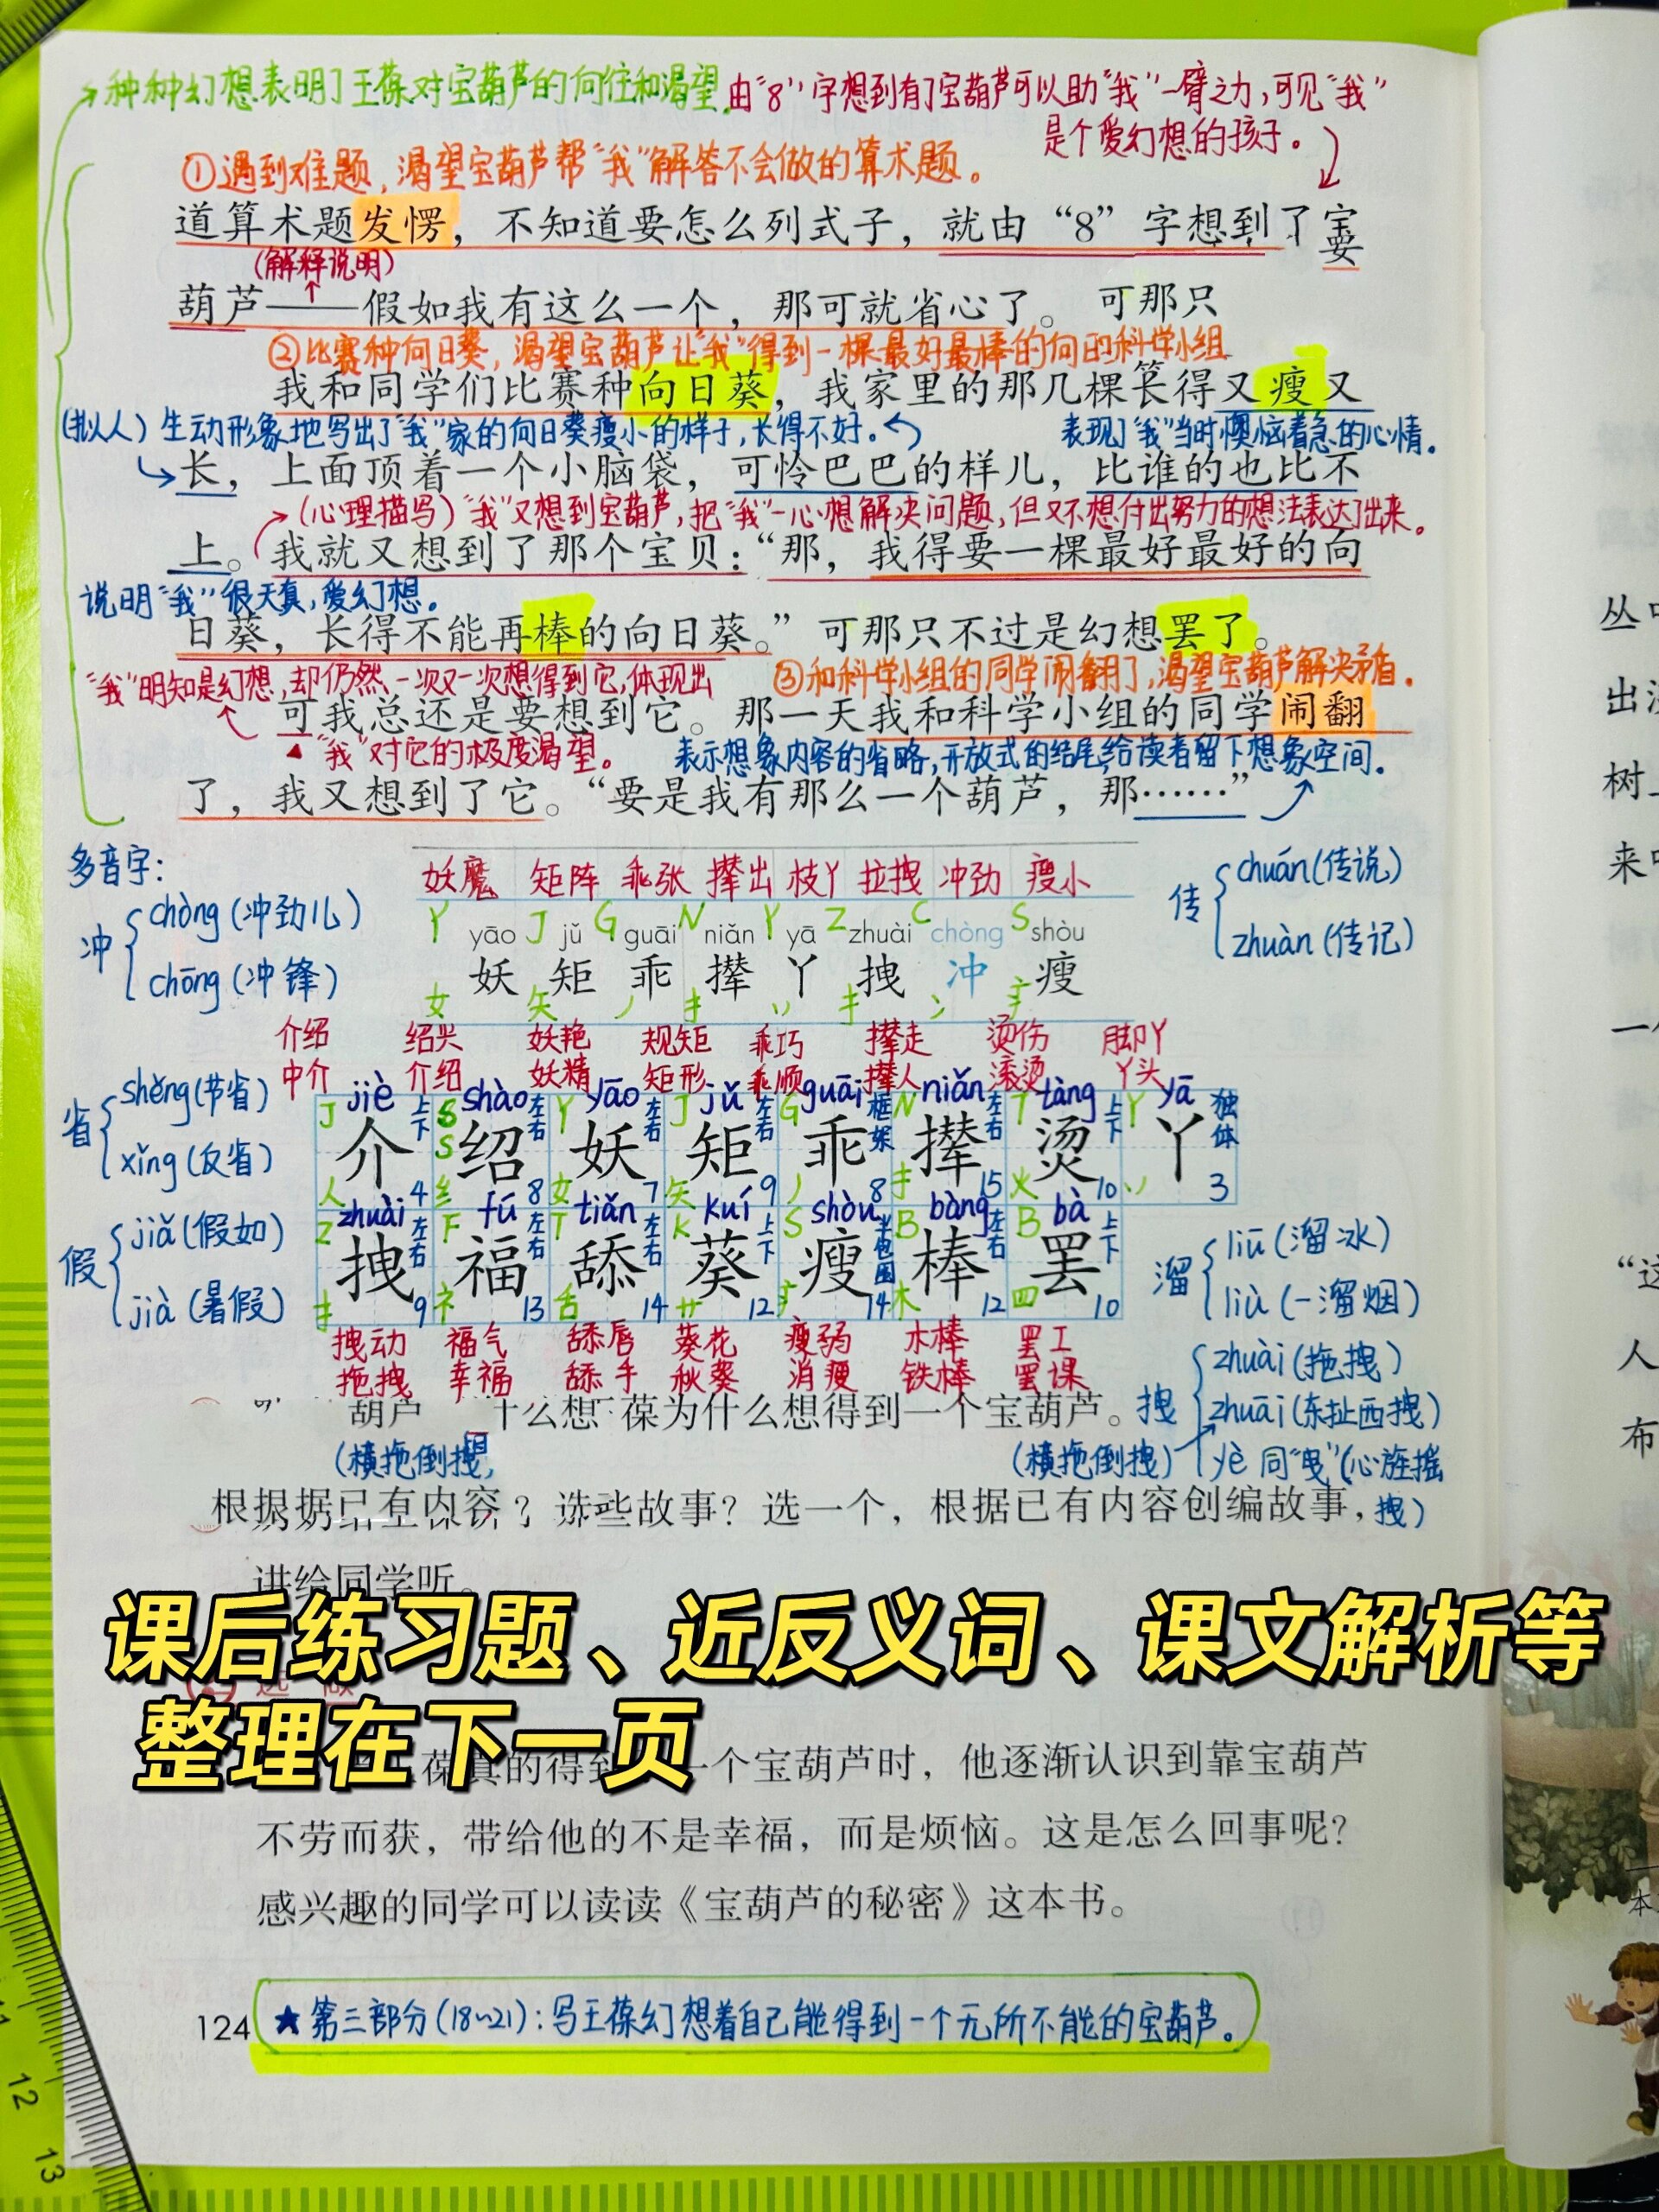 种种幻想表明了王葆对宝葫芦的向往和渴望
由“8”字想到有了宝葫芦可以助“我”一臂之力，可见“我”
是个爱幻想的孩子。
①遇到难题，渴望宝葫芦帮“我”解答不会做的算术题。
道算术题发愣，不知道要怎么列式子，就由“8”字想到了宝
要
(解释说明)
葫芦——假如我有这么一个，那可就省心了。可那只
②比赛种向日葵，渴望宝葫芦让“我”得到一棵最好最棒的向日科学小组
我和同学们比赛种向日葵，我家里的那几棵长得又瘦又
(拟人)生动形象地写出了“我”家的向日葵瘦小的样子，长得不好。
表现了“我”当时懊恼着急的心情。
长，上面顶着一个小脑袋，可怜巴巴的样儿，比谁的也比不
(心理描写)“我”又想到宝葫芦，把“我”一心想解决问题，但又不想付出努力的想法表达了出来。
上。我就又想到了那个宝贝：“那，我得要一棵最好最好的向
说明“我”很天真，爱幻想。
日葵，长得不能再棒的向日葵。”可那只不过是幻想罢了。
“我”明知是幻想，却仍然一次又一次想得到它，体现出
③和科学小组的同学闹翻了，渴望宝葫芦解决矛盾。
可我总还是要想到它。那一天我和科学小组的同学闹翻
“我”对它的极度渴望。
表示想象内容的省略，开放式的结尾给读者留下想象空间。
了，我又想到了它。“要是我有那么一个葫芦，那……”
多音字：
冲 chòng(冲劲儿)
chōng(冲锋)
妖魔 矩阵 乖张 撵出 枝丫 拉拽 冲劲 瘦小
Y yāo J jǔ G guāi N niǎn Y yā Z zhuài C chòng S shòu
妖 矩 乖 撵 丫 拽 冲 瘦
女 矢 丿 扌 丷 扌 冫 疒
传 chuán(传说)
zhuàn(传记)
介绍 绍兴 妖艳 规矩 乖巧 撵走 烫伤 脚丫
中介 介绍 妖精 矩形 乖顺 撵人 滚烫 丫头
省 shěng(节省)
xǐng(反省)
J jiè 上下 S shào 左右 Y yāo 左右 J jǔ 左右 G guāi 框架 N niǎn 左右 T tàng 上下 Y yā 独体
介 绍 妖 矩 乖 撵 烫 丫
人 4 纟 8 女 7 矢 9 丿 8 扌 15 火 10 丷 3
假 jiǎ(假如)
jià(暑假)
Z zhuài 左右 F fú 左右 T tiǎn 左右 K kuí 上下 S shòu 半包围 B bàng 左右 B bà 上下
拽 福 舔 葵 瘦 棒 罢
扌 9 礻 13 舌 14 艹 12 疒 14 木 12 罒 10
溜 liū(溜冰)
liù(一溜烟)
拽动 福气 舔唇 葵花 瘦弱 木棒 罢工
拖拽 幸福 舔手 秋葵 消瘦 铁棒 罢课
拽 zhuài(拖拽)
zhuāi(东扯西拽)
yè 同“曳”(心旌摇
拽)
葫芦 什么想 葆为什么想得到一个宝葫芦。
(横拖倒拽
(横拖倒拽)
根据已有内容？选些故事？选一个，根据已有内容创编故事，
讲给同学听。
课后练习题、近反义词、课文解析等
整理在下一页
选做
葆真的得到 一个宝葫芦时，他逐渐认识到靠宝葫芦
不劳而获，带给他的不是幸福，而是烦恼。这是怎么回事呢？
感兴趣的同学可以读读《宝葫芦的秘密》这本书。
124
★第三部分(18~21)：写王葆幻想着自己能得到一个无所不能的宝葫芦。
丛
出
树
来
一
“这
人
布
本
12
13